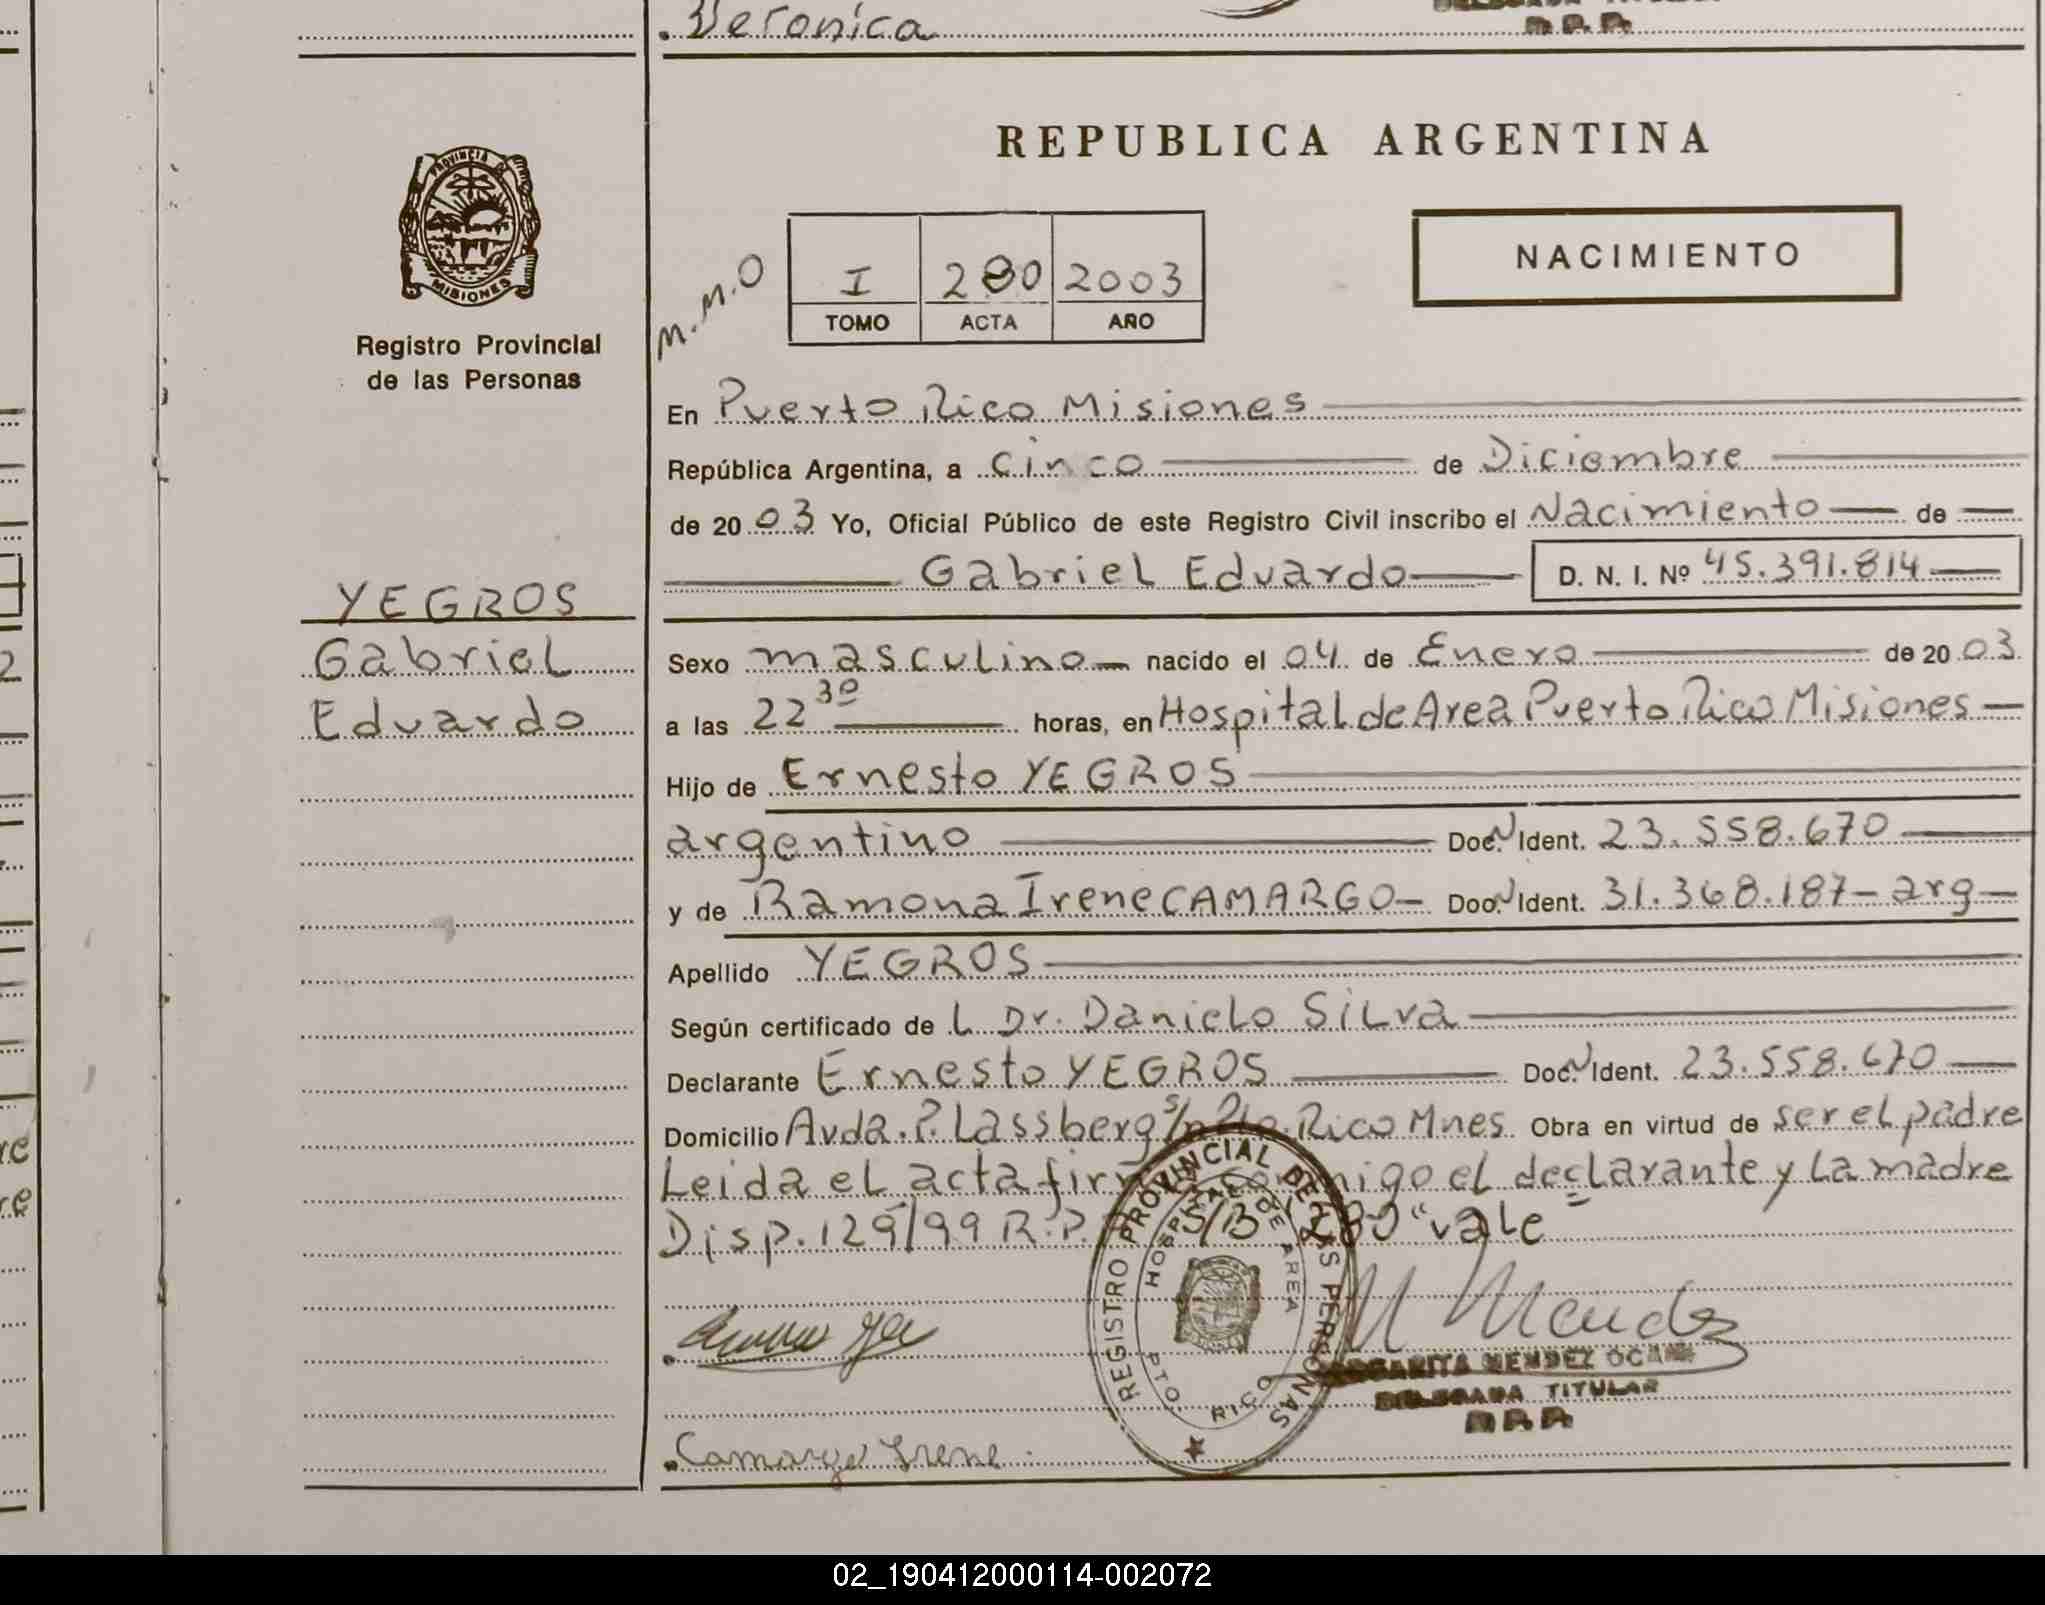 Veronica
REPUBLICA ARGENTINA
PROVINCIA DE
MISIONES
Registro Provincial
de las Personas
M.M.O
I 280 2003
TOMO ACTA AÑO
NACIMIENTO
En Puerto Rico Misiones
República Argentina, a cinco de Diciembre
de 2003 Yo, Oficial Público de este Registro Civil inscribo el Nacimiento de
Gabriel Eduardo D. N. I. Nº 45.391.814
YEGROS
Gabriel
Eduardo
Sexo masculino nacido el 04 de Enero de 2003
a las 22 30 horas, en Hospital de Area Puerto Rico Misiones
Hijo de Ernesto YEGROS
argentino Doc. N Ident. 23.558.670
y de Ramona Irene CAMARGO Doc. N Ident. 31.368.187 - arg
Apellido YEGROS
Según certificado de l Dr. Danielo Silva
Declarante Ernesto YEGROS Doc. N Ident. 23.558.670
Domicilio Avda. P. Lassberg s/n Pto. Rico Mnes Obra en virtud de ser el padre
Leida el acta conmigo el declarante y la madre
Disp. 129/99 R.P. S/B 280 "vale"
REGISTRO PROVINCIAL DE LAS PERSONAS
HOSPITAL DE AREA
PTO. RICO
M Mendez
MARGARITA MENDEZ OCAMPO
DELEGADA TITULAR
R.P.P.
Camargo Irene.
02_190412000114-002072